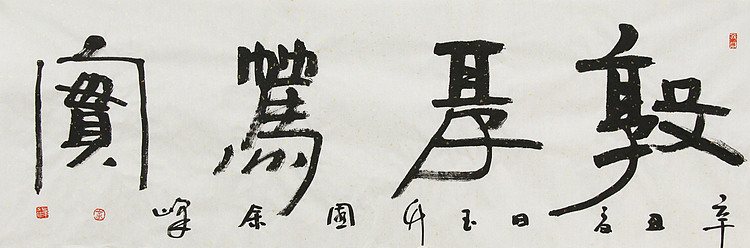 敦厚篤實
辛丑春日玉竹余峰